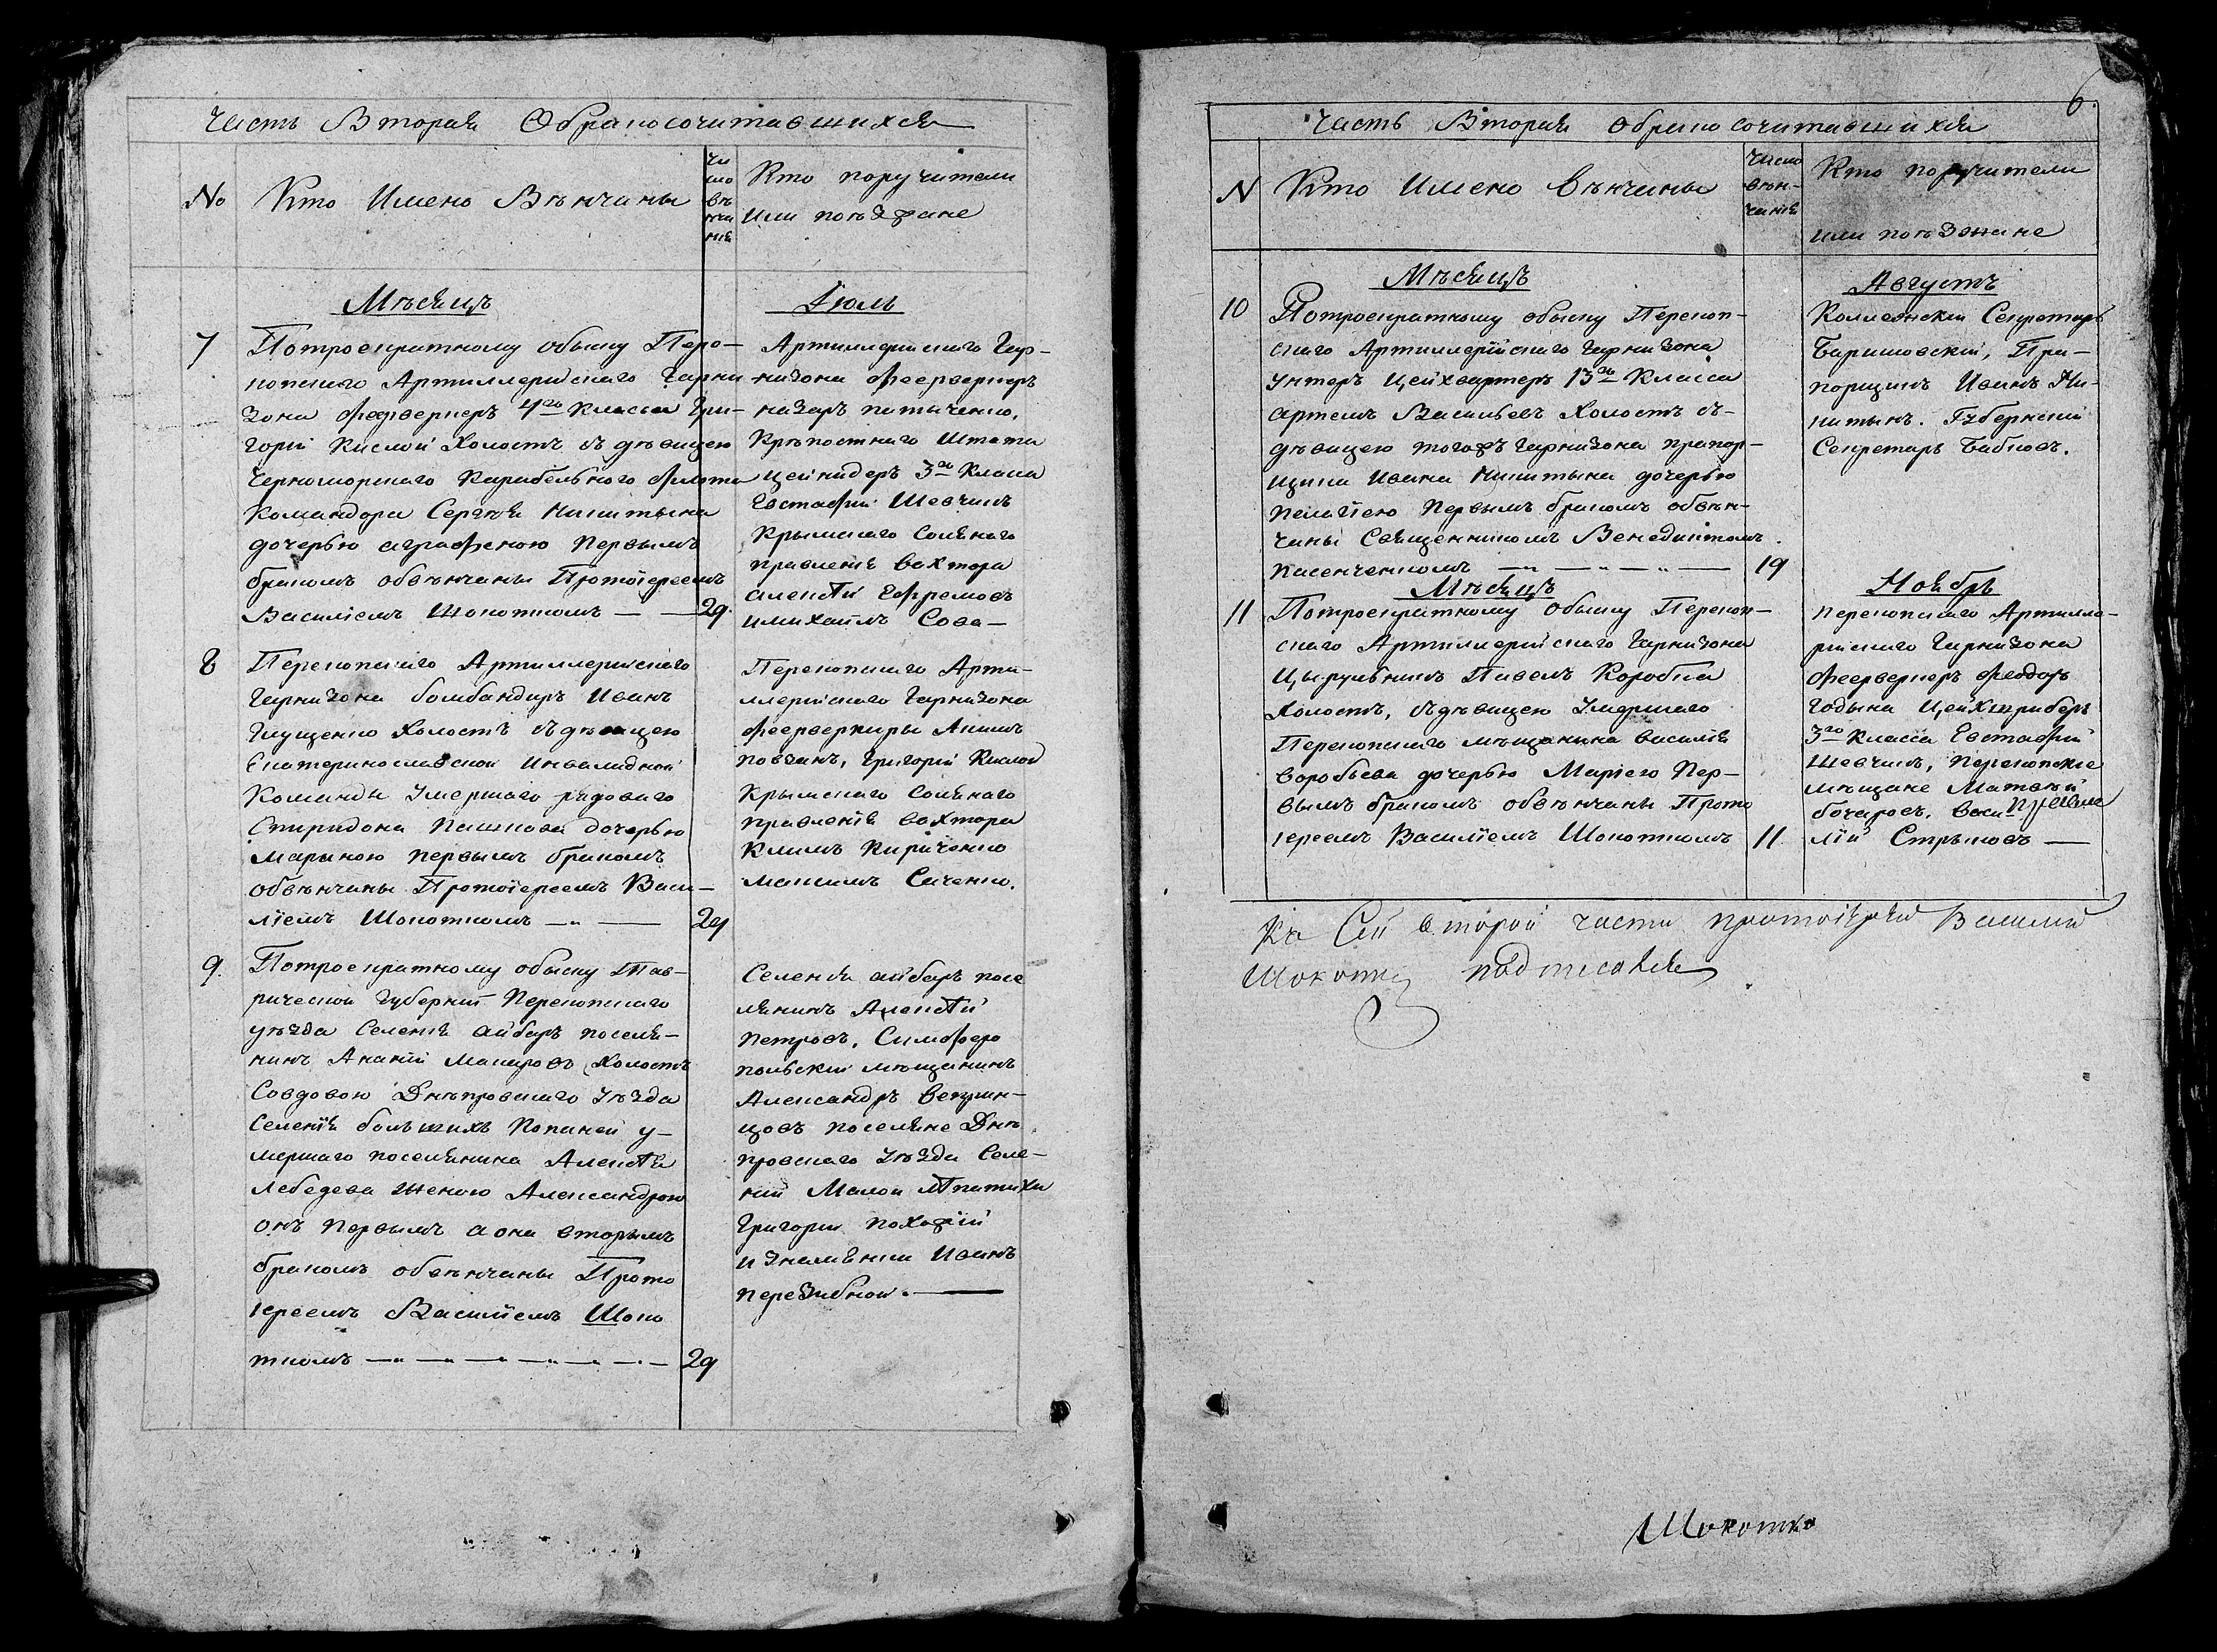 Часть Вторая Обракосочитавшихся
№
Кто Имено Вѣнчаны
Чи
сло
вѣ
нча
нія
Кто поручители
или поѣзжане
Мѣсяцъ
Іюль
7
Потроекратному обыску Пере-
копскаго Артиллерійскаго Гарни
зона феерверкеръ 4го Класса Гри-
горій Кислой Холостъ съ дѣвицею
Черноморскаго Карабельнаго флота
Командора Сергѣя Никитина
дочерью аграфеною Первымъ
бракомъ обвѣнчаны Протоіереемъ
Василіемъ Шокоткомъ — — 29.
Артиллерійскаго Гар-
низона феерверкеръ
назаръ
Крѣпостнаго Штата
цейхидеръ 3го Класа
Евстафій Шевчикъ
Крымскаго Солянаго
правленія вахтера
алексѣй Ефремовъ
имихайлъ Сова —
8
Перекопскаго Артиллерійскаго
Гарнизона бомбандиръ Иванъ
Глущенко Холостъ съ дѣвицею
Екатеринославской Инвалидной
Команды Умершаго рядоваго
Спиридона Пашкова дочерью
Марьною первымъ бракомъ
обвѣнчаны Протоіереемъ Васи-
ліемъ Шокоткомъ — „ — 29
Перекопскаго Арти-
ллерійскаго Гарнизона
феерверкиры Акимъ
Повзикъ, Григорій Кислой
Крымскаго Солянаго
правленія вахтера
Климъ Кириченко
Максимъ Саченко.
9.
Потроекратному обыску Тав-
рической Губерніи Перекопскаго
уѣзда Селенія айбаръ поселя-
нинъ Ананій Макаровъ Холостъ
Совдовою Днѣпровскаго Уѣзда
Селенія большихъ Копаней у-
мершаго поселянина Алексѣя
Лебедева Женою Александрою
онъ первымъ а она вторымъ
бракомъ обвѣнчаны Прото
іереемъ Василіемъ Шоко
ткомъ — „ — „ — „ — „ — „ — 29
Селенія айбаръ посе
лянинъ Алексѣй
Петровъ, Симферо
польскій мѣщанинъ
Александръ
цовъ поселяне Днѣ
провскаго Уѣзда Селе-
ній Малой Лѣпатихи
Григорій
и Знамѣнки Иванъ
перезибной. —
6.
Часть Вторая Обрако сочитавшихся
N
Кто Имено вѣнчаны
Число
вѣн-
чанія
Кто поручители
или поѣзжане
Мѣсяцъ
Августъ
10
Потроекратному обыску Перекоп-
скаго Артиллерійскаго Гарнизона
Унтеръ Цейхвартеръ 13го Класса
артемъ Васильевъ Холостъ съ-
дѣвицею тогожъ Гарнизона прапор-
щика Ивана Никитина дочерью
Пелагіею Первымъ бракомъ обвѣн-
чаны Священникомъ Венедиктомъ
Касенченкомъ — „ — „ — „ — 19
Коллежскій Секретарь
Баришовскій, Пра-
порщикъ Иванъ Ни-
китинъ. Губернскій
Секретарь Бабковъ.
Мѣсяцъ
Ноябрь
11
Потроекратному Обыску Перекоп-
скаго Артиллерійскаго Гарнизона
Цырульникъ Павелъ Коробка
Холостъ, съ дѣвицею Умершаго
Перекопскаго мѣщанина василія
воробьева дочерью Маріею Пер-
вымъ бракомъ обвѣнчаны Прото
іереемъ Василіемъ Шокоткомъ 11
Перекопскаго Артилле-
рійскаго Гарнизона
феерверкеръ феодоръ
Годына Цейхшриберъ
3го Класса Евстафій
Шевчикъ, Перекопскіе
мѣщане Матвѣй
бочаровъ, васи
лій Стрѣковъ —
Къ Сей второй части протоіерей Василій
Шокотко подписался
Шокотко